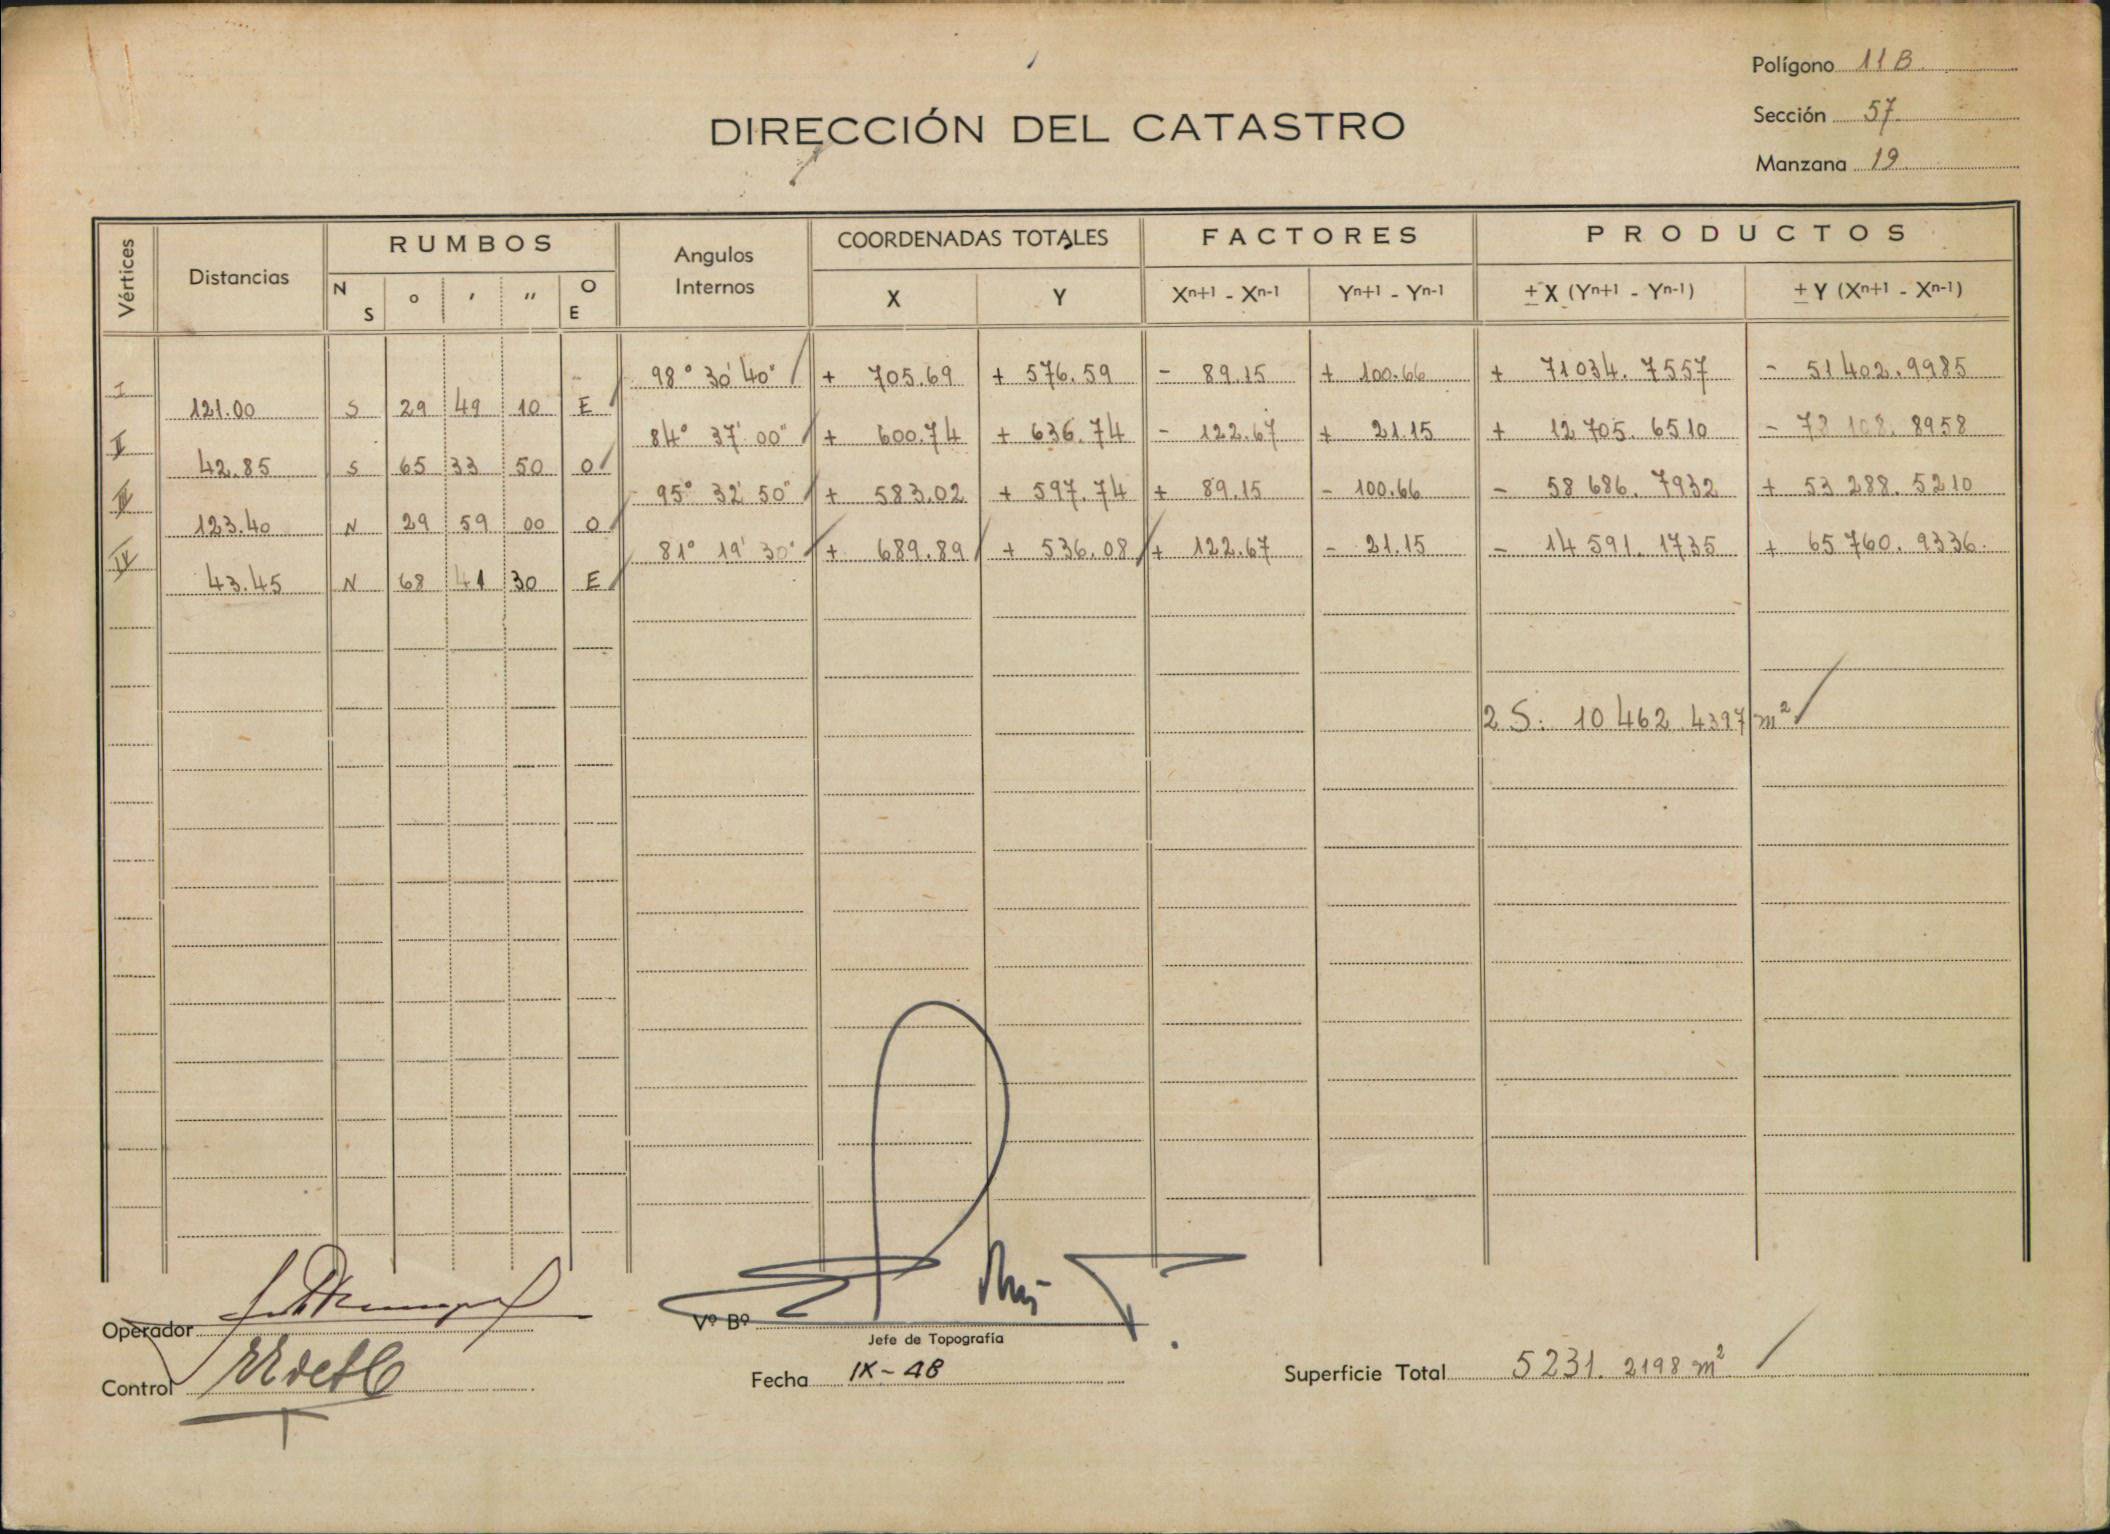 Polígono 11 B.
Sección 57.
Manzana 19.
DIRECCIÓN DEL CATASTRO
Vértices
Distancias
RUMBOS
N S ° ' " O E
Angulos Internos
COORDENADAS TOTALES
X Y
FACTORES
Xn+1 - Xn-1 Yn+1 - Yn-1
PRODUCTOS
± X (Yn+1 - Yn-1) ± Y (Xn+1 - Xn-1)
I 98° 30' 40" + 705.69 + 576.59 - 89.15 + 100.66 + 71034.7557 - 51402.9985
121.00 S 29 49 10 E
II 84° 37' 00" + 600.74 + 636.74 - 122.67 + 21.15 + 12705.6510 - 78108.8958
42.85 S 65 33 50 O
III 95° 32' 50" + 583.02 + 597.74 + 89.15 - 100.66 - 58686.7932 + 53288.5210
123.40 N 29 59 00 O
IV 81° 19' 30" + 689.89 + 536.08 + 122.67 - 21.15 - 14591.1735 + 65760.9336.
43.45 N 68 41 30 E
2 S: 10462.4397 m²
Operador
Vº Bº
Jefe de Topografía
Control
Fecha IX-48
Superficie Total 5231.2198 m²